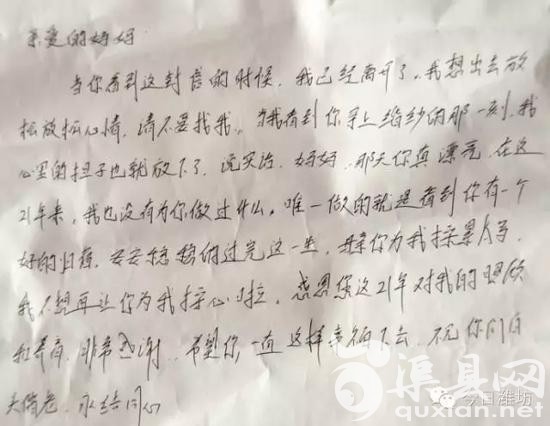 亲爱的妈妈
当你看到这封信的时候，我已经离开了。我想出去放
松放松心情，请不要找我。当我看到你穿上婚纱的那一刻，我
心里的担子也就放下了，说实话，妈妈，那天你真漂亮，在这
21年来，我也没有为你做过什么，唯一做的就是看到你有一个
好的归宿，安安稳稳的过完这一生，你为我操累
我不想再让你为我操心啦，感恩您这21年对我的照顾
和养育，非常感谢，希望你一直这样幸福下去，祝你们白
头偕老，永结同心
渠县网
quxian.net
今日潍坊